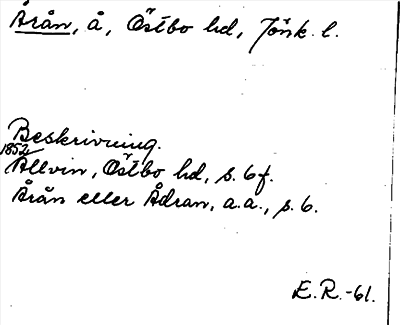 Årån, å, Östbo hd, Jönk. l.
Beskrivning.
1852
Allvin, Östbo hd, s. 6 f.
Årån eller Ådran, a.a., s. 6.
E.R.-61.